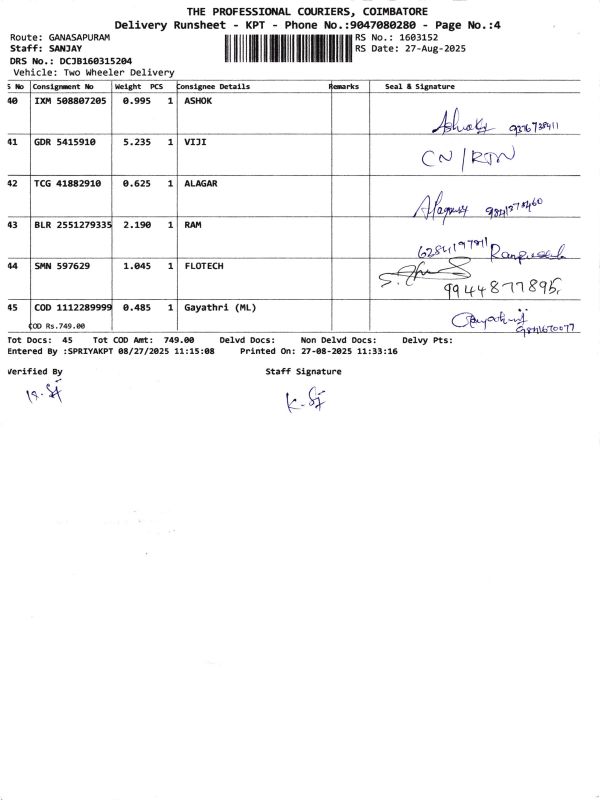 THE PROFESSIONAL COURIERS, COIMBATORE
Delivery Runsheet - KPT - Phone No.:9047080280 - Page No.:4
Route: GANASAPURAM RS No.: 1603152
Staff: SANJAY RS Date: 27-Aug-2025
DRS No.: DCJB160315204
Vehicle: Two Wheeler Delivery
S No Consignment No Weight PCS Consignee Details Remarks Seal & Signature
40 IXM 508807205 0.995 1 ASHOK
Ashok
41 GDR 5415910 5.235 1 VIJI
CN/RTN
42 TCG 41882910 0.625 1 ALAGAR
43 BLR 2551279335 2.190 1 RAM
44 SMN 597629 1.045 1 FLOTECH
9944877895
45 COD 1112289999 0.485 1 Gayathri (ML)
COD Rs.749.00
Tot Docs: 45 Tot COD Amt: 749.00 Delvd Docs: Non Delvd Docs: Delvy Pts:
Entered By :SPRIYAKPT 08/27/2025 11:15:08 Printed On: 27-08-2025 11:33:16
Verified By Staff Signature